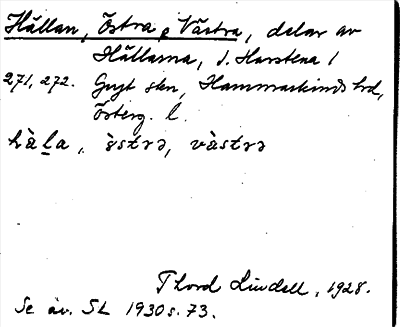 Hällan, Östra o Västra, delar av
Hällarna, S. Harstena 1
271, 272. Gryt skn, Hammarkinds hrd,
Österg. l.
hàḷa, ɵ̀strə, vàstrə
Thord Lindell, 1928.
Se äv. SL 1930 s. 73.